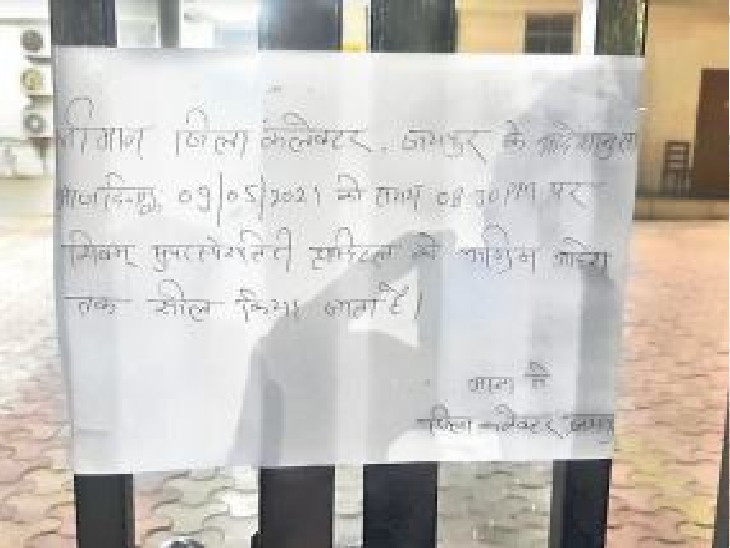 श्रीमान जिला कलेक्टर, जयपुर के आदेशानुसार
आज दिनांक 09/05/2021 को समय 08:30 PM पर
शिवम् सुपरस्पेशलिटी हॉस्पिटल को अग्रिम आदेश
तक सील किया जाता है।
आज्ञा से
जिला कलेक्टर जयपुर